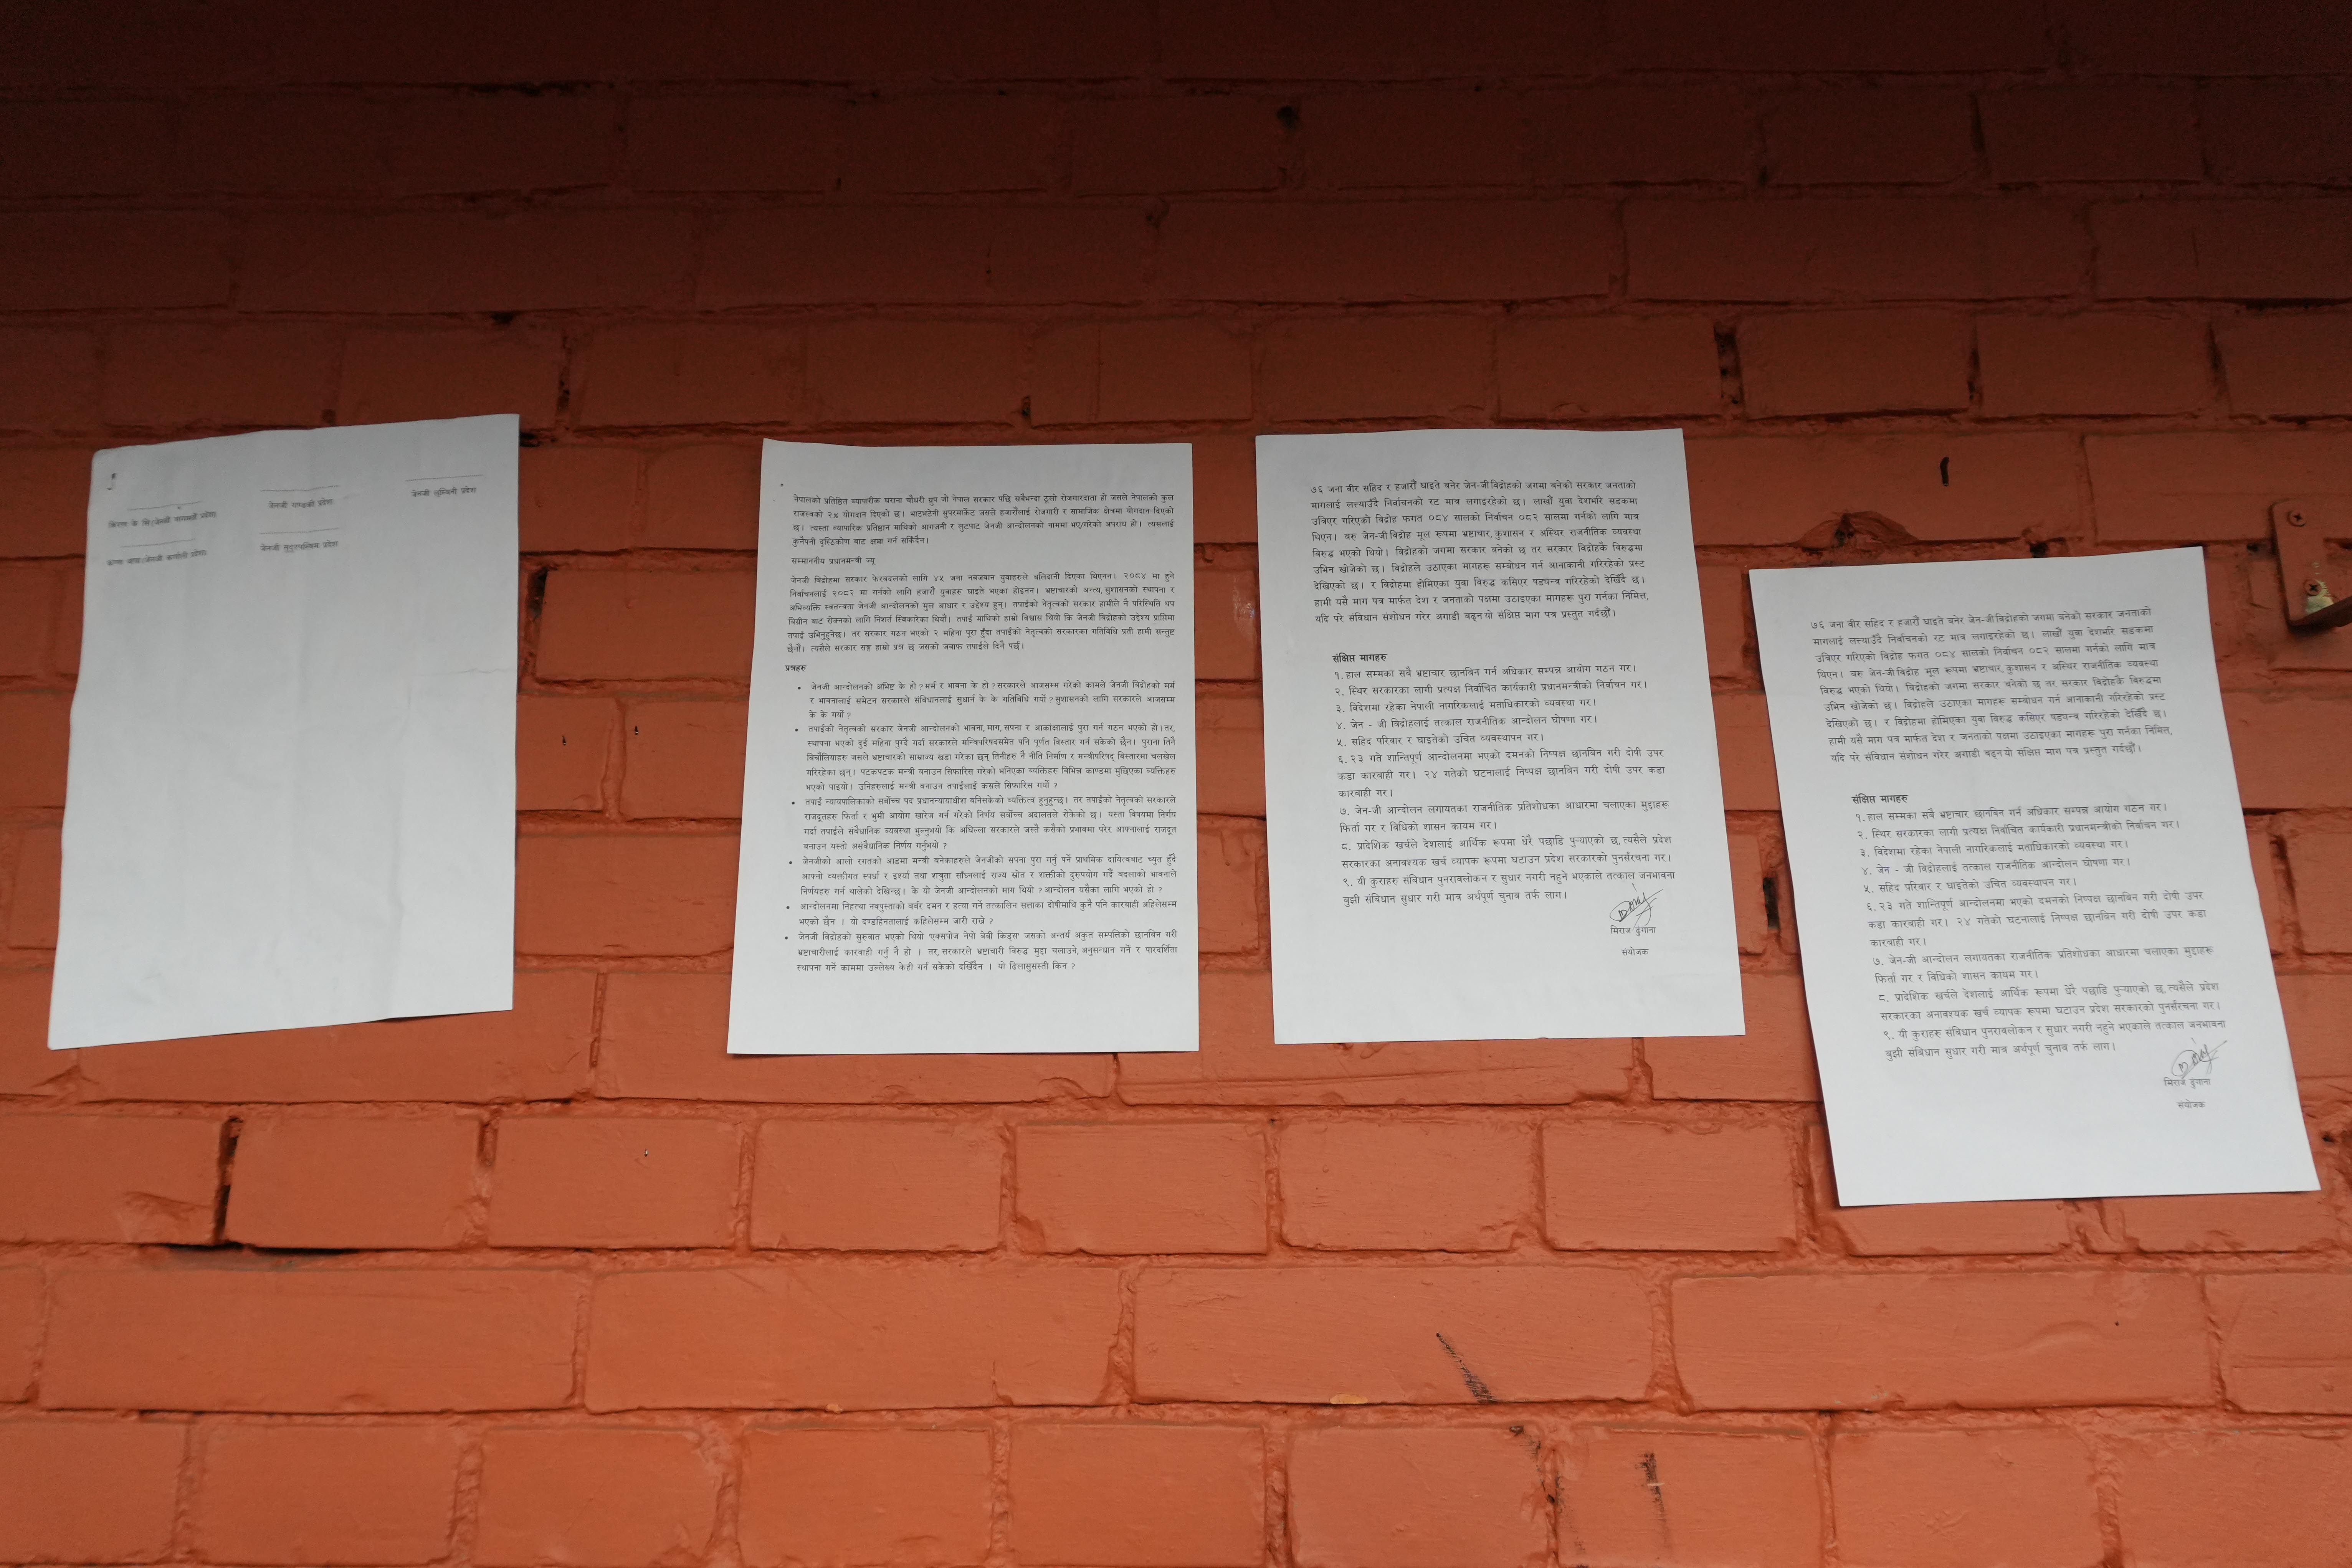 जेनजी गण्डकी प्रदेश
जेनजी लुम्बिनी प्रदेश
जेनजी सुदुरपश्चिम प्रदेश
नेपालको प्रतिष्ठित व्यापारीक घराना चौधरी ग्रुप जो नेपाल सरकार पछि सबैभन्दा ठूलो रोजगारदाता हो जसले नेपालको कुल
राजस्वको २% योगदान दिएको छ। भाटभटेनी सुपरमार्केट जसले हजारौंलाई रोजगारी र सामाजिक क्षेत्रमा योगदान दिएको
छ। त्यस्ता व्यापारिक प्रतिष्ठान माथिको आगजनी र लुटपाट जेनजी आन्दोलनको नाममा भए/गरेको अपराध हो। त्यसलाई
कुनैपनी दृस्टिकोण बाट क्षमा गर्न सकिँदैन।
सम्माननीय प्रधानमन्त्री ज्यू
जेनजी विद्रोहमा सरकार फेरबदलको लागि ४५ जना नवजवान युवाहरुले बलिदानी दिएका थिएनन। २०८४ मा हुने
निर्वाचनलाई २०८२ मा गर्नको लागि हजारौं युवाहरु घाइते भएका होइनन। भ्रष्टाचारको अन्त्य, सुशासनको स्थापना र
अभिव्यक्ति स्वतन्त्रता जेनजी आन्दोलनको मुल आधार र उद्देश्य हुन्। तपाईंको नेतृत्वको सरकार हामीले नै परिस्थिति थप
बिग्रीन बाट रोक्नको लागि निशर्त स्विकारेका थियौं। तपाई माथिको हाम्रो विश्वास थियो कि जेनजी विद्रोहको उद्देश्य प्राप्तिमा
तपाई उभिनुहुनेछ। तर सरकार गठन भएको २ महिना पूरा हुँदा तपाईंको नेतृत्वको सरकारका गतिविधि प्रती हामी सन्तुष्ट
छैनौं। त्यसैले सरकार सङ्ग हाम्रो प्रश्न छ जसको जवाफ तपाईले दिनै पर्छ।
प्रश्नहरु
• जेनजी आन्दोलनको अभिष्ट के हो ? मर्म र भावना के हो ? सरकारले आजसम्म गरेको कामले जेनजी विद्रोहको मर्म
र भावनालाई समेटन सरकारले संविधानलाई सुधार्न के के गतिविधि गर्यो ? सुशासनको लागि सरकारले आजसम्म
के के गर्यो ?
• तपाईंको नेतृत्वको सरकार जेनजी आन्दोलनको भावना, माग, सपना र आकांक्षालाई पुरा गर्न गठन भएको हो। तर,
स्थापना भएको दुई महिना पुग्दै गर्दा सरकारले मन्त्रिपरिषदसमेत पनि पूर्णत विस्तार गर्न सकेको छैन। पुराना तिनै
बिचौलियाहरु जसले भ्रष्टाचारको साम्राज्य खडा गरेका छन् तिनीहरु नै नीति निर्माण र मन्त्रीपरिषद् बिस्तारमा चलखेल
गरिरहेका छन्। पटकपटक मन्त्री बनाउन सिफारिस गरेको भनिएका व्यक्तिहरु विभिन्न काण्डमा मुछिएका व्यक्तिहरु
भएको पाइयो। उनिहरुलाई मन्त्री बनाउन तपाईंलाई कसले सिफारिस गर्यो ?
• तपाईं न्यायपालिकाको सर्वोच्च पद प्रधानन्यायाधीश बनिसकेको व्यक्तित्व हुनुहुन्छ। तर तपाईंको नेतृत्वको सरकारले
राजदूतहरु फिर्ता र भुमी आयोग खारेज गर्न गरेको निर्णय सर्वोच्च अदालतले रोकेको छ। यस्ता विषयमा निर्णय
गर्दा तपाईंले संवैधानिक व्यवस्था भुल्नुभयो कि अघिल्ला सरकारले जस्तै कसैको प्रभावमा परेर आफ्नालाई राजदूत
बनाउन यस्तो असंवैधानिक निर्णय गर्नुभयो ?
• जेनजीको आलो रगतको आडमा मन्त्री बनेकाहरुले जेनजीको सपना पुरा गर्नु पर्ने प्राथमिक दायित्वबाट च्युत हुँदै
आफ्नो व्यक्तीगत स्पर्धा र इर्श्या तथा शत्रुता साँध्नलाई राज्य स्रोत र शक्तीको दुरुपयोग गर्दै बदलाको भावनाले
निर्णयहरु गर्न थालेको देखिन्छ। के यो जेनजी आन्दोलनको माग थियो ? आन्दोलन यसैका लागि भएको हो ?
• आन्दोलनमा निहत्था नवपुस्ताको बर्वर दमन र हत्या गर्ने तत्कालिन सत्ताका दोषीमाथि कुनै पनि कारबाही अहिलेसम्म
भएको छैन । यो दण्डहिनतालाई कहिलेसम्म जारी राख्ने ?
• जेनजी विद्रोहको सुरुवात भएको थियो 'एक्सपोज नेपो बेबी किड्स' जसको अन्तर्य अकुत सम्पत्तिको छानबिन गरी
भ्रष्टाचारीलाई कारबाही गर्नु नै हो । तर, सरकारले भ्रष्टाचारी विरुद्ध मुद्दा चलाउने, अनुसन्धान गर्ने र पारदर्शिता
स्थापना गर्ने काममा उल्लेख्य केही गर्न सकेको दखिँदैन । यो ढिलासुसस्ती किन ?
७६ जना वीर सहिद र हजारौं घाइते बनेर जेन-जी विद्रोहको जगमा बनेको सरकार जनताको
मागलाई लत्याउँदै निर्वाचनको रट मात्र लगाइरहेको छ। लाखौं युवा देशभरि सडकमा
उत्रिएर गरिएको विद्रोह फगत ०८४ सालको निर्वाचन ०८२ सालमा गर्नको लागि मात्र
थिएन। बरु जेन-जी विद्रोह मूल रूपमा भ्रष्टाचार, कुशासन र अस्थिर राजनीतिक व्यवस्था
विरुद्ध भएको थियो। विद्रोहको जगमा सरकार बनेको छ तर सरकार विद्रोहकै विरुद्धमा
उभिन खोजेको छ। विद्रोहले उठाएका मागहरू सम्बोधन गर्न आनाकानी गरिरहेको प्रस्ट
देखिएको छ। र विद्रोहमा होमिएका युवा विरुद्ध कसिएर षडयन्त्र गरिरहेको देखिँदै छ।
हामी यसै माग पत्र मार्फत देश र जनताको पक्षमा उठाइएका मागहरू पुरा गर्नका निमित्त,
यदि परे संविधान संशोधन गरेर अगाडी बढ्न यो संक्षिप्त माग पत्र प्रस्तुत गर्दछौं।
संक्षिप्त मागहरु
१. हाल सम्मका सबै भ्रष्टाचार छानबिन गर्न अधिकार सम्पन्न आयोग गठन गर।
२. स्थिर सरकारका लागी प्रत्यक्ष निर्वाचित कार्यकारी प्रधानमन्त्रीको निर्वाचन गर।
३. विदेशमा रहेका नेपाली नागरिकलाई मताधिकारको व्यवस्था गर।
४. जेन - जी विद्रोहलाई तत्काल राजनीतिक आन्दोलन घोषणा गर।
५. सहिद परिवार र घाइतेको उचित व्यवस्थापन गर।
६. २३ गते शान्तिपूर्ण आन्दोलनमा भएको दमनको निष्पक्ष छानबिन गरी दोषी उपर
कडा कारवाही गर। २४ गतेको घटनालाई निष्पक्ष छानबिन गरी दोषी उपर कडा
कारवाही गर।
७. जेन-जी आन्दोलन लगायतका राजनीतिक प्रतिशोधका आधारमा चलाएका मुद्दाहरू
फिर्ता गर र विधिको शासन कायम गर।
८. प्रादेशिक खर्चले देशलाई आर्थिक रूपमा धेरै पछाडि पुऱ्याएको छ, त्यसैले प्रदेश
सरकारका अनावश्यक खर्च व्यापक रूपमा घटाउन प्रदेश सरकारको पुनर्संरचना गर।
९. यी कुराहरु संविधान पुनरावलोकन र सुधार नगरी नहुने भएकाले तत्काल जनभावना
बुझी संविधान सुधार गरी मात्र अर्थपूर्ण चुनाव तर्फ लाग।
मिराज ढुंगाना
संयोजक
७६ जना वीर सहिद र हजारौं घाइते बनेर जेन-जी विद्रोहको जगमा बनेको सरकार जनताको
मागलाई लत्याउँदै निर्वाचनको रट मात्र लगाइरहेको छ। लाखौं युवा देशभरि सडकमा
उत्रिएर गरिएको विद्रोह फगत ०८४ सालको निर्वाचन ०८२ सालमा गर्नको लागि मात्र
थिएन। बरु जेन-जी विद्रोह मूल रूपमा भ्रष्टाचार, कुशासन र अस्थिर राजनीतिक व्यवस्था
विरुद्ध भएको थियो। विद्रोहको जगमा सरकार बनेको छ तर सरकार विद्रोहकै विरुद्धमा
उभिन खोजेको छ। विद्रोहले उठाएका मागहरू सम्बोधन गर्न आनाकानी गरिरहेको प्रस्ट
देखिएको छ। र विद्रोहमा होमिएका युवा विरुद्ध कसिएर षडयन्त्र गरिरहेको देखिँदै छ।
हामी यसै माग पत्र मार्फत देश र जनताको पक्षमा उठाइएका मागहरू पुरा गर्नका निमित्त,
यदि परे संविधान संशोधन गरेर अगाडी बढ्न यो संक्षिप्त माग पत्र प्रस्तुत गर्दछौं।
संक्षिप्त मागहरु
१. हाल सम्मका सबै भ्रष्टाचार छानबिन गर्न अधिकार सम्पन्न आयोग गठन गर।
२. स्थिर सरकारका लागी प्रत्यक्ष निर्वाचित कार्यकारी प्रधानमन्त्रीको निर्वाचन गर।
३. विदेशमा रहेका नेपाली नागरिकलाई मताधिकारको व्यवस्था गर।
४. जेन - जी विद्रोहलाई तत्काल राजनीतिक आन्दोलन घोषणा गर।
५. सहिद परिवार र घाइतेको उचित व्यवस्थापन गर।
६. २३ गते शान्तिपूर्ण आन्दोलनमा भएको दमनको निष्पक्ष छानबिन गरी दोषी उपर
कडा कारवाही गर। २४ गतेको घटनालाई निष्पक्ष छानबिन गरी दोषी उपर कडा
कारवाही गर।
७. जेन-जी आन्दोलन लगायतका राजनीतिक प्रतिशोधका आधारमा चलाएका मुद्दाहरू
फिर्ता गर र विधिको शासन कायम गर।
८. प्रादेशिक खर्चले देशलाई आर्थिक रूपमा धेरै पछाडि पुऱ्याएको छ, त्यसैले प्रदेश
सरकारका अनावश्यक खर्च व्यापक रूपमा घटाउन प्रदेश सरकारको पुनर्संरचना गर।
९. यी कुराहरु संविधान पुनरावलोकन र सुधार नगरी नहुने भएकाले तत्काल जनभावना
बुझी संविधान सुधार गरी मात्र अर्थपूर्ण चुनाव तर्फ लाग।
मिराज ढुंगाना
संयोजक